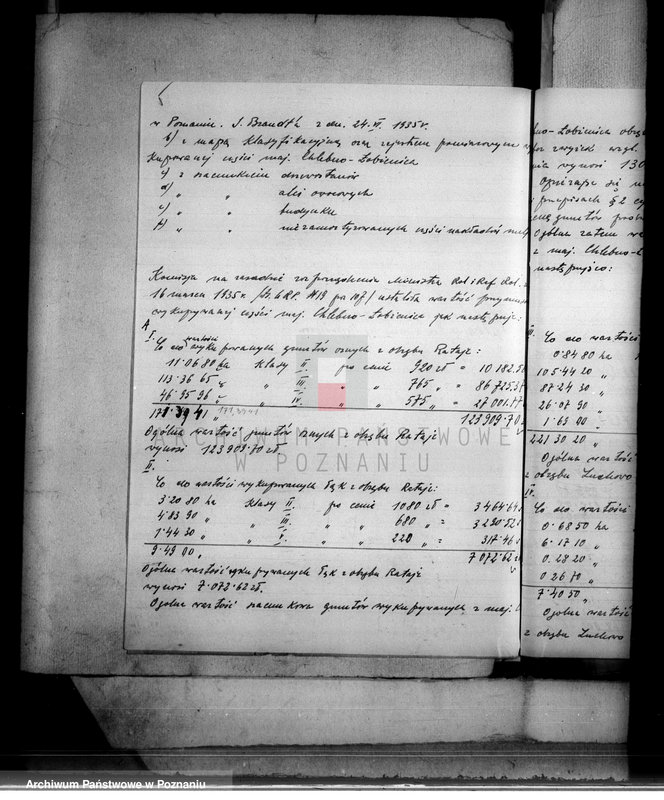 w Poznaniu. J. Brandt'a z dn. 24.VI. 1935r.
b) z mapą klasyfikacyjną oraz rejestrem pomiarowym wy
kupowanej części maj. Chlebno-Łobżenica
c) z szacunkiem drzewostanów
d) " " alei owocowych
e) " " budynku
f) " " niezamortyzowanych części nakładów
Komisja na zasadzie rozporządzenia Ministra Rol i Ref Rol. z
16 marca 1935r. ustaliła wartość
wykupywanej części maj. Chlebno-Łobżenica jak następuje:
A
I.
Co do wartości wykupowanych gruntów ornych z obrębu Rataje:
11·06 80 ha klasy II. po cenie 920 zł = 10 182.5
113·36 65 " " III. " " 765 " = 86 725.3
46·95 96 " " IV. " " 575 " = 27 001.77
171·39 41 " 171,39 41 123 909.70
Ogólna wartość gruntów ornych z obrębu Rataje
wynosi 123 909.70 zł.
II.
Co do wartości wykupowanych łąk z obrębu Rataje:
3·20 80 ha klasy II. po cenie 1080 zł = 3 464.64
4·83 90 " " III. " 680 " = 3 290.52
1·44 30 " " V. " 220 " = 317.46
9·49 00 " 7 072.62
Ogólna wartość wykupywanych łąk z obrębu Rataje
wynosi 7·072.62 zł.
Ogólna wartość szacunkowa gruntów wykupywanych z maj.
Łobżenica
wynosi 130
opierając się
przepisach § 2
gruntów
Ogólna zatem
z maj. Chlebno-
następująco:
III. Co do wartości
0·84 80 ha
105·44 20 "
87·24 30 "
26·07 90 "
1·69 00 "
221 30 20 "
Ogólna wartość
z obrębu Luchowo
IV.
Co do wartości
0·68 50 ha
6·17 10 "
0·28 20 "
0 26 70 "
7·40 50 "
Ogólna wartość
z obrębu Luchowo
ARCHIWUM PAŃSTWOWE
W POZNANIU
Archiwum Państwowe w Poznaniu